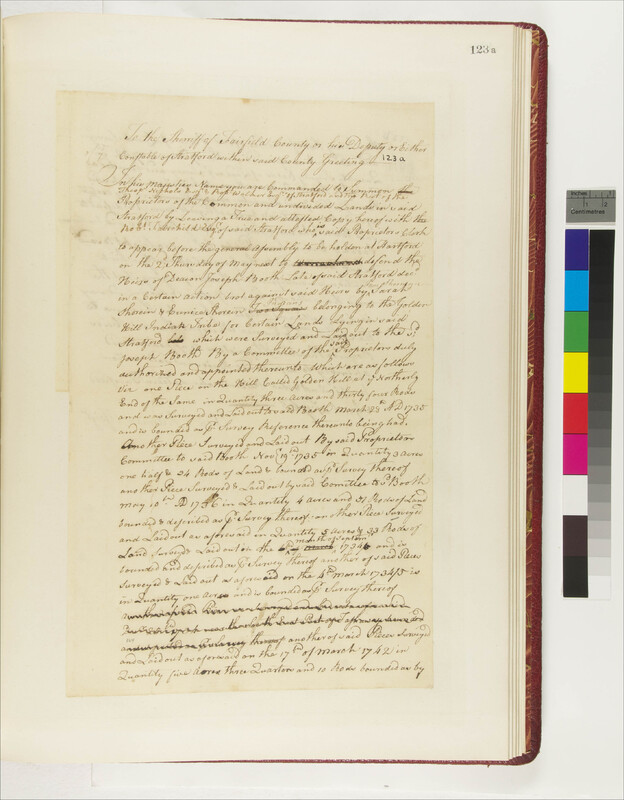 123a
To the Sheriff of Fairfield County or his Deputy or Either
Constable of Stratford within said County Greeting
123a
In his Majesties Name you are Commanded to Summon
Theop. Nichols Esq & of Stratford and the Rest of the
Proprietors of the Common and undivided Lands in said
Stratford by Leaving a True and attested Copy hereof with
Robt. Fairchild Esq of said Stratford who is said Proprietors Clerk
to appear before the general Assembly to be holden at Hartford
on the 2d Thursday of May next to defend the
Heirs of Deacon Joseph Booth Late of said Stratford decd
in a Certain action brot against said Heirs by Sarah
Sherein & Eunice Sherein belonging to the Golden
Hill Indian Tribe for Certain Lands Lying in said
Stratford which were Surveyed and Laid out to the sd
Joseph Booth By a Committee of the said Proprietors duly
authorized and appointed thereunto. Which are as follows
viz one Piece on the Hill Called Golden Hill at ye Northerly
End of the Same in Quantity three Acres and thirty four Rods
and was Surveyed and Laid out to said Booth March 23d AD 1735
and is bounded as pr Survey Reference thereunto being had.
Another Piece Surveyed and Laid out By said Proprietors
Committee to said Booth Novr 19th 1735 in Quantity 3 acres
one half & 34 Rods of Land & bounded as pr Survey thereof
another Piece Surveyed & Laid out by said Comittee to sd Booth
May 10th AD 1746 in Quantity 4 acres and 31 Rods of Land
bounded & described as pr Survey thereof another Piece Surveyed
and Laid out as aforesaid in Quantity 5 Acres & 33 Rods of
Land Survey'd & Laid out in the month of Septemr
1734 and is
bounded and described as pr Survey thereof another of said Pieces
Surveyed & Laid out as aforesaid on the 4th March 1734/5 is
in Quantity one Acre and is bounded as pr Survey thereof
another of said Pieces Surveyed
and Laid out as aforesaid on the 17th of March 1742 in
Quantity five Acres three Quarters and 10 Rods bounded as by